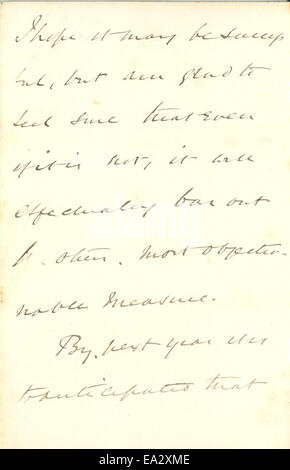 I hope it may be success
ful, but am glad to
feel sure that even
if it is not, it will
effectually bar out
other most objection-
nable measure.
By next year
anticipated that
alamy
EA2XME
www.alamy.com